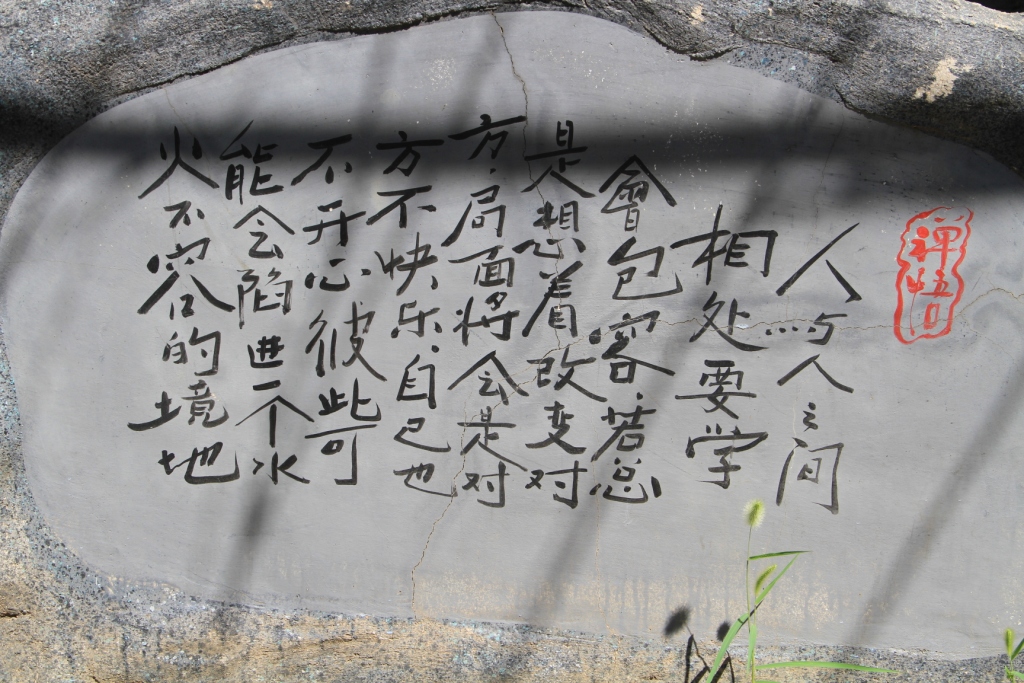 禅悟
人与人之间
相处要学
會包容，若总
是想着改变对
方，局面将会是对
方不快乐，自己也
不开心，彼此可
能会陷进一个水
火不容的境地